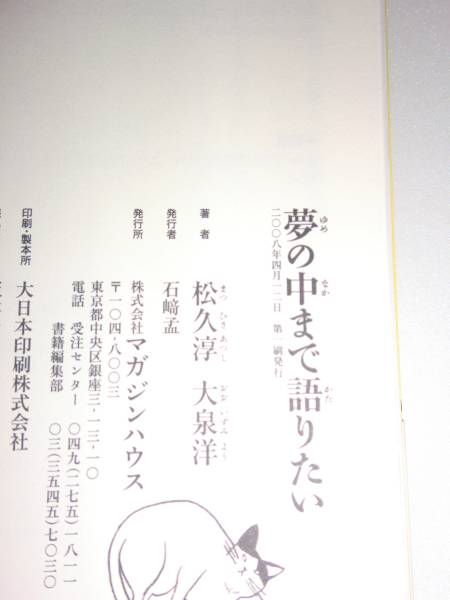 夢の中まで語りたい
ゆめ なか かた
二〇〇八年四月一二日 第一刷発行
著者 松久淳 大泉洋
まつ ひさ あつし おお いずみ よう
発行者 石﨑孟
発行所 株式会社マガジンハウス
〒一〇四-八〇〇三
東京都中央区銀座三-一三-一〇
電話 受注センター 〇四九(二七五)一八一一
書籍編集部 〇三(三五四五)七〇三〇
印刷・製本所 大日本印刷株式会社